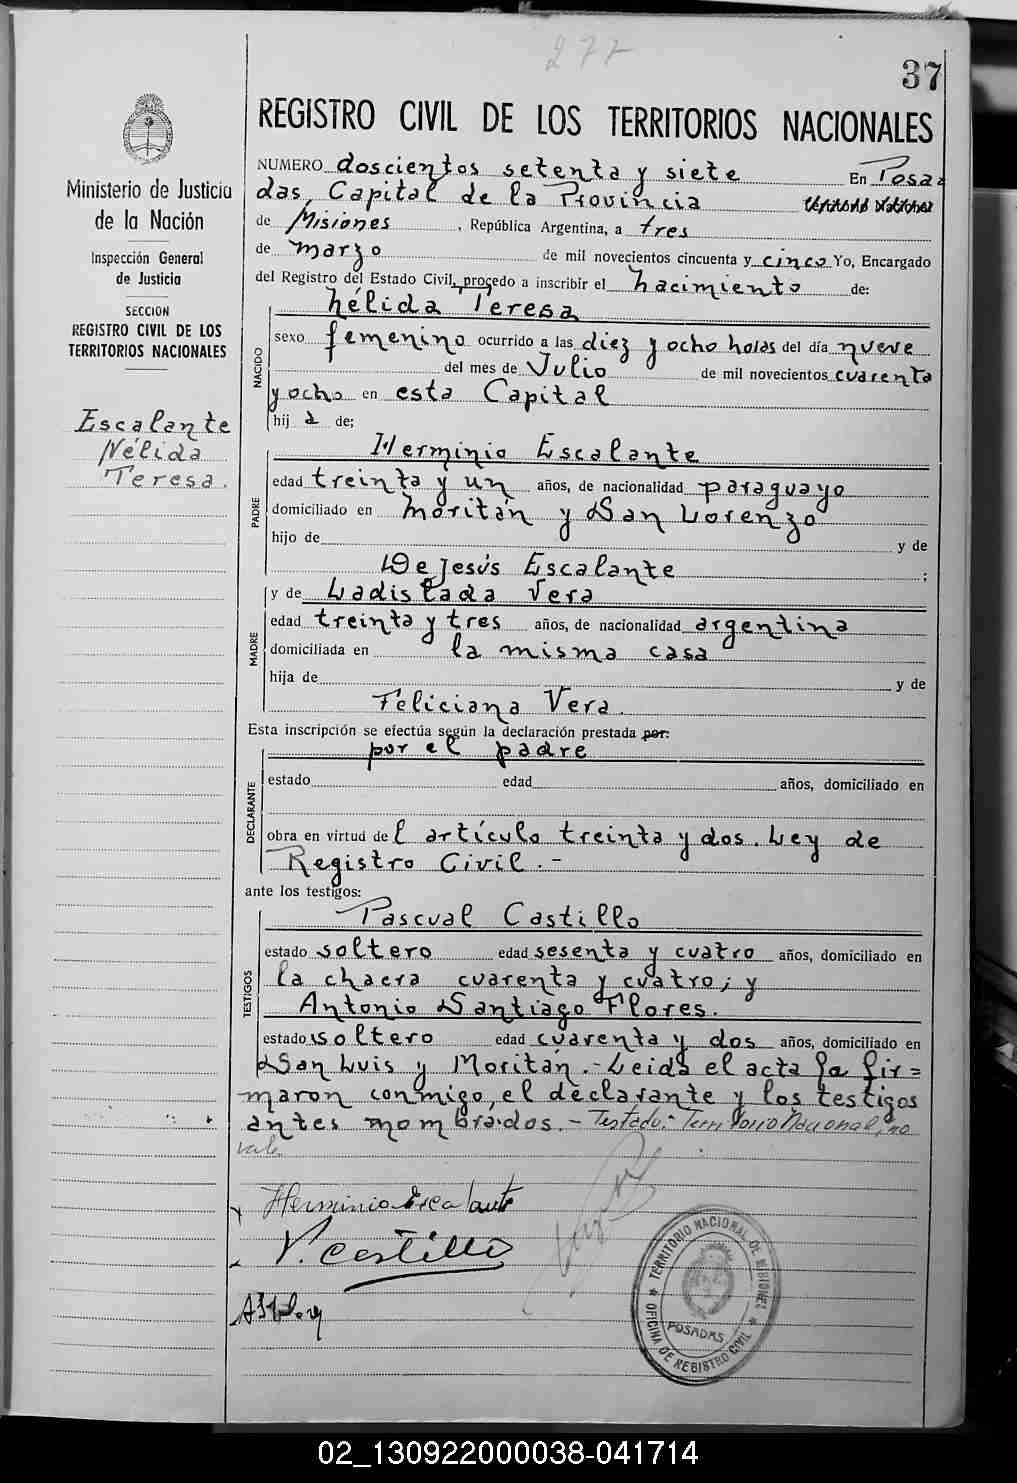 277
37
REGISTRO CIVIL DE LOS TERRITORIOS NACIONALES
Ministerio de Justicia
de la Nación
Inspección General
de Justicia
SECCION
REGISTRO CIVIL DE LOS
TERRITORIOS NACIONALES
Escalante
Nélida
Teresa.
NUMERO doscientos setenta y siete En Posa=
das, Capital de la Provincia
de Misiones, República Argentina, a tres
de marzo de mil novecientos cincuenta y cinco Yo, Encargado
del Registro del Estado Civil, procedo a inscribir el nacimiento de:
Nélida Teresa
NACIDO
sexo femenino ocurrido a las diez y ocho horas del día nueve
del mes de Julio de mil novecientos cuarenta
y ocho en esta Capital
hij a de;
Herminio Escalante
PADRE
edad treinta y un años, de nacionalidad paraguayo
domiciliado en Moritán y San Lorenzo
hijo de y de
De Jesús Escalante ;
y de Ladislada Vera
MADRE
edad treinta y tres años, de nacionalidad argentina
domiciliada en la misma casa
hija de y de
Feliciana Vera.
Esta inscripción se efectúa según la declaración prestada por:
por el padre
DECLARANTE
estado edad años, domiciliado en
obra en virtud del artículo treinta y dos. Ley de
Registro Civil.-
ante los testigos:
Pascual Castillo
TESTIGOS
estado soltero edad sesenta y cuatro años, domiciliado en
la chacra cuarenta y cuatro; y
Antonio Santiago Flores.
estado soltero edad cuarenta y dos años, domiciliado en
San Luis y Moritán.- Leida el acta la fir=
maron conmigo, el declarante y los testigos
antes mombrados.- Testado: Territorio Nacional, no
vale
Herminio Escalante
P. Castillo
TERRITORIO NACIONAL DE MISIONES
POSADAS
OFICINA DE REGISTRO CIVIL
02_130922000038-041714